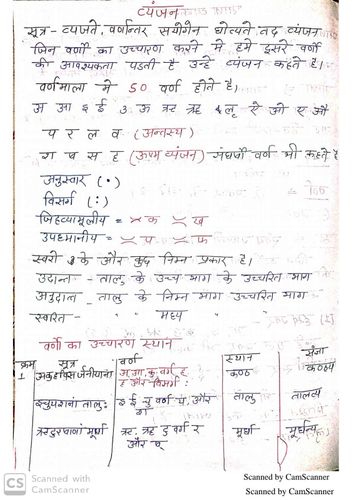 व्यंजन
सूत्र - व्यज्यते, वर्णान्तर सयोगेन द्योत्यते तद व्यंजन
जिन वर्णों का उच्चारण करने मे हमे दूसरे वर्णों
की आवश्यकता पडती है उन्हे व्यंजन कहते है।
वर्णमाला मे 50 वर्ण होते है।
अ आ इ ई उ ऊ ऋ ॠ लृ ऐ ओ ए औ
य र ल व (अन्तस्थ)
श ष स ह (ऊष्म व्यंजन) संघर्षी वर्ण भी कहते है
अनुस्वार (•)
विसर्ग (:)
जिहव्यामूलीय = ×क ×ख
उपध्मानीय = ×प ×फ
स्वरो के और कुछ निम्न प्रकार है।
उदान्त - तालु के उच्च भाग के उच्चरित भाग
अनुदात्त - तालु के निम्न भाग उच्चरित भाग
स्वरित - " " मध्य "
वर्णो का उच्चारण स्थान
क्रम सूत्र वर्ण स्थान संज्ञा
1 अकुहविसर्जनीयाना अ,आ,कु वर्ग ह और विसर्ग: कण्ठ कण्ठ्य
इचुयशानां तालु: इ ई चु वर्ग य, और श तालु तालव्य
ऋटुरषाणां मूर्धा ऋ, ॠ टु वर्ग र और ष् मूर्धा मूर्धन्य
CS Scanned with
CamScanner
Scanned by CamScanner
Scanned by CamScanner